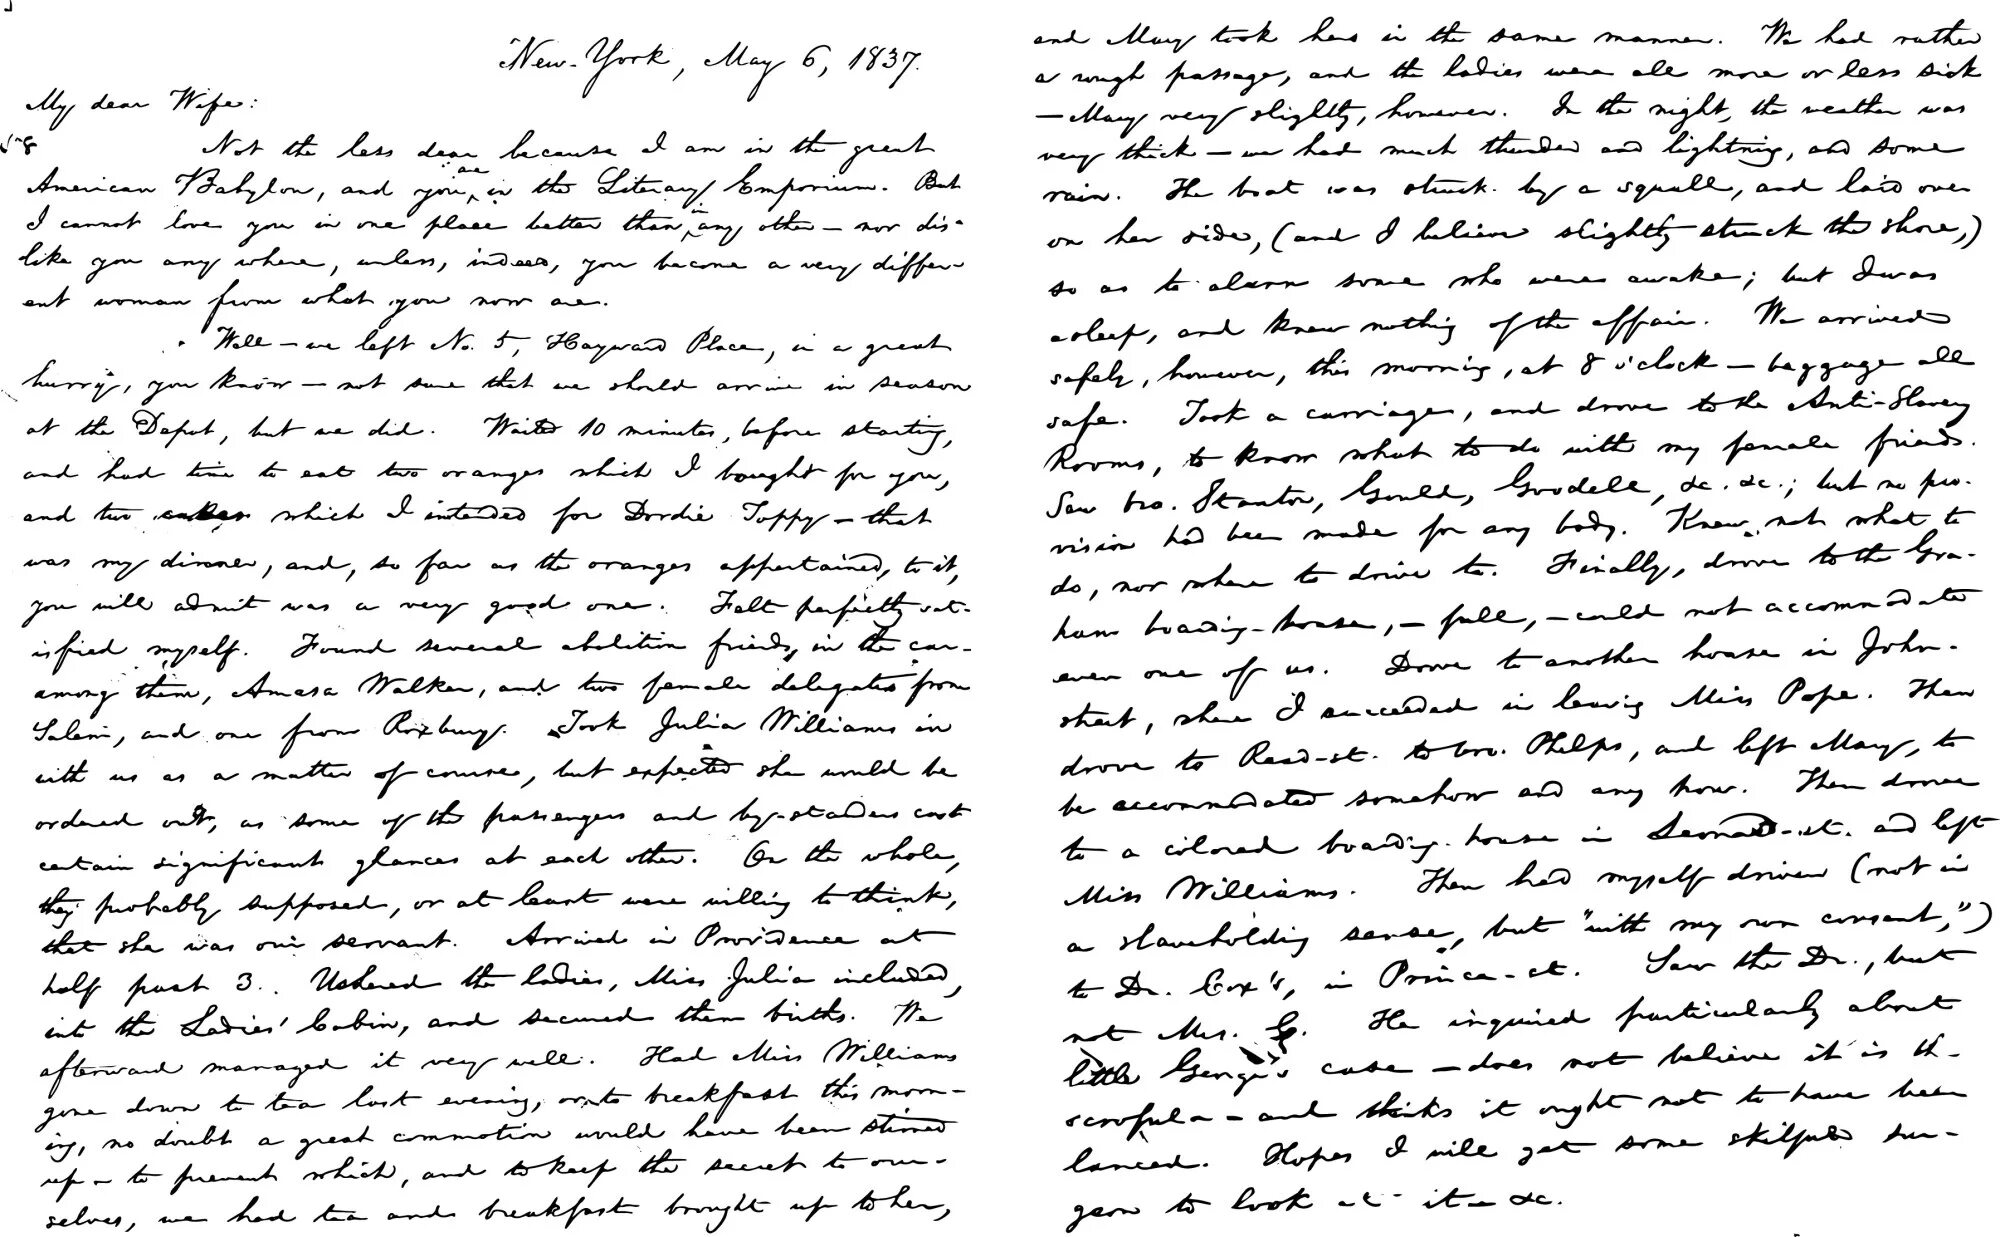 New-York, May 6, 1837.
My dear Wife:
58
Not the less dear because I am in the great
American Babylon, and you are in the Literary Emporium. But
I cannot love you in one place better than in any other — nor dis-
like you any where, unless, indeed, you become a very differ-
ent woman from what you now are.
Well — we left No. 5, Hayward Place, in a great
hurry, you know — not sure that we should arrive in season
at the Depot, but we did. Waited 10 minutes, before starting,
and had time to eat two oranges which I bought for you,
and two cakes which I intended for Dordie Toppy — that
was my dinner, and, so far as the oranges appertained, to it,
you will admit was a very good one. Felt perfectly sat-
isfied myself. Found several abolition friends, in the car —
among them, Amasa Walker, and two female delegates from
Salem, and one from Roxbury. Took Julia Williams in
with us as a matter of course, but expected she would be
ordered out, as some of the passengers and by-standers cast
certain significant glances at each other. On the whole,
they probably supposed, or at least were willing to think,
that she was our servant. Arrived in Providence at
half past 3. Ushered the ladies, Miss Julia included,
into the Ladies' Cabin, and secured them births. We
afterward managed it very well. Had Miss Williams
gone down to tea last evening, or to breakfast this morn-
ing, no doubt a great commotion would have been stirred
up — to prevent which, and to keep the secret to our-
selves, we had tea and breakfast brought up to her,
and Mary took hers in the same manner. We had rather
a rough passage, and the ladies were all more or less sick
— Mary very slightly, however. In the night, the weather was
very thick — we had much thunder and lightning, and some
rain. The boat was struck by a squall, and laid over
on her side, (and I believe slightly struck the shore,)
so as to alarm some who were awake; but I was
asleep, and knew nothing of the affair. We arrived
safely, however, this morning, at 8 o'clock — baggage all
safe. Took a carriage, and drove to the Anti-Slavery
Rooms, to know what to do with my female friends.
Saw bro. Stanton, Gould, Goodell, &c. &c.; but no pro-
vision had been made for any body. Knew not what to
do, nor where to drive to. Finally, drove to the Gra-
ham boarding-house, — full, — could not accommodate
even one of us. Drove to another house in John-
street, where I succeeded in leaving Miss Pope. Then
drove to Read-st. to bro. Phelps, and left Mary, to
be accommodated somehow and any how. Then drove
to a colored boarding-house in Leonard-st. and left
Miss Williams. Then had myself driven (not in
a slaveholding sense, but "with my own consent,")
to Dr. Cox's, in Prince-st. Saw the Dr., but
not Mrs. C. He inquired particularly about
little George's case — does not believe it is th-
scrofula — and thinks it ought not to have been
lanced. Hopes I will get some skilful sur-
geon to look at it — &c.